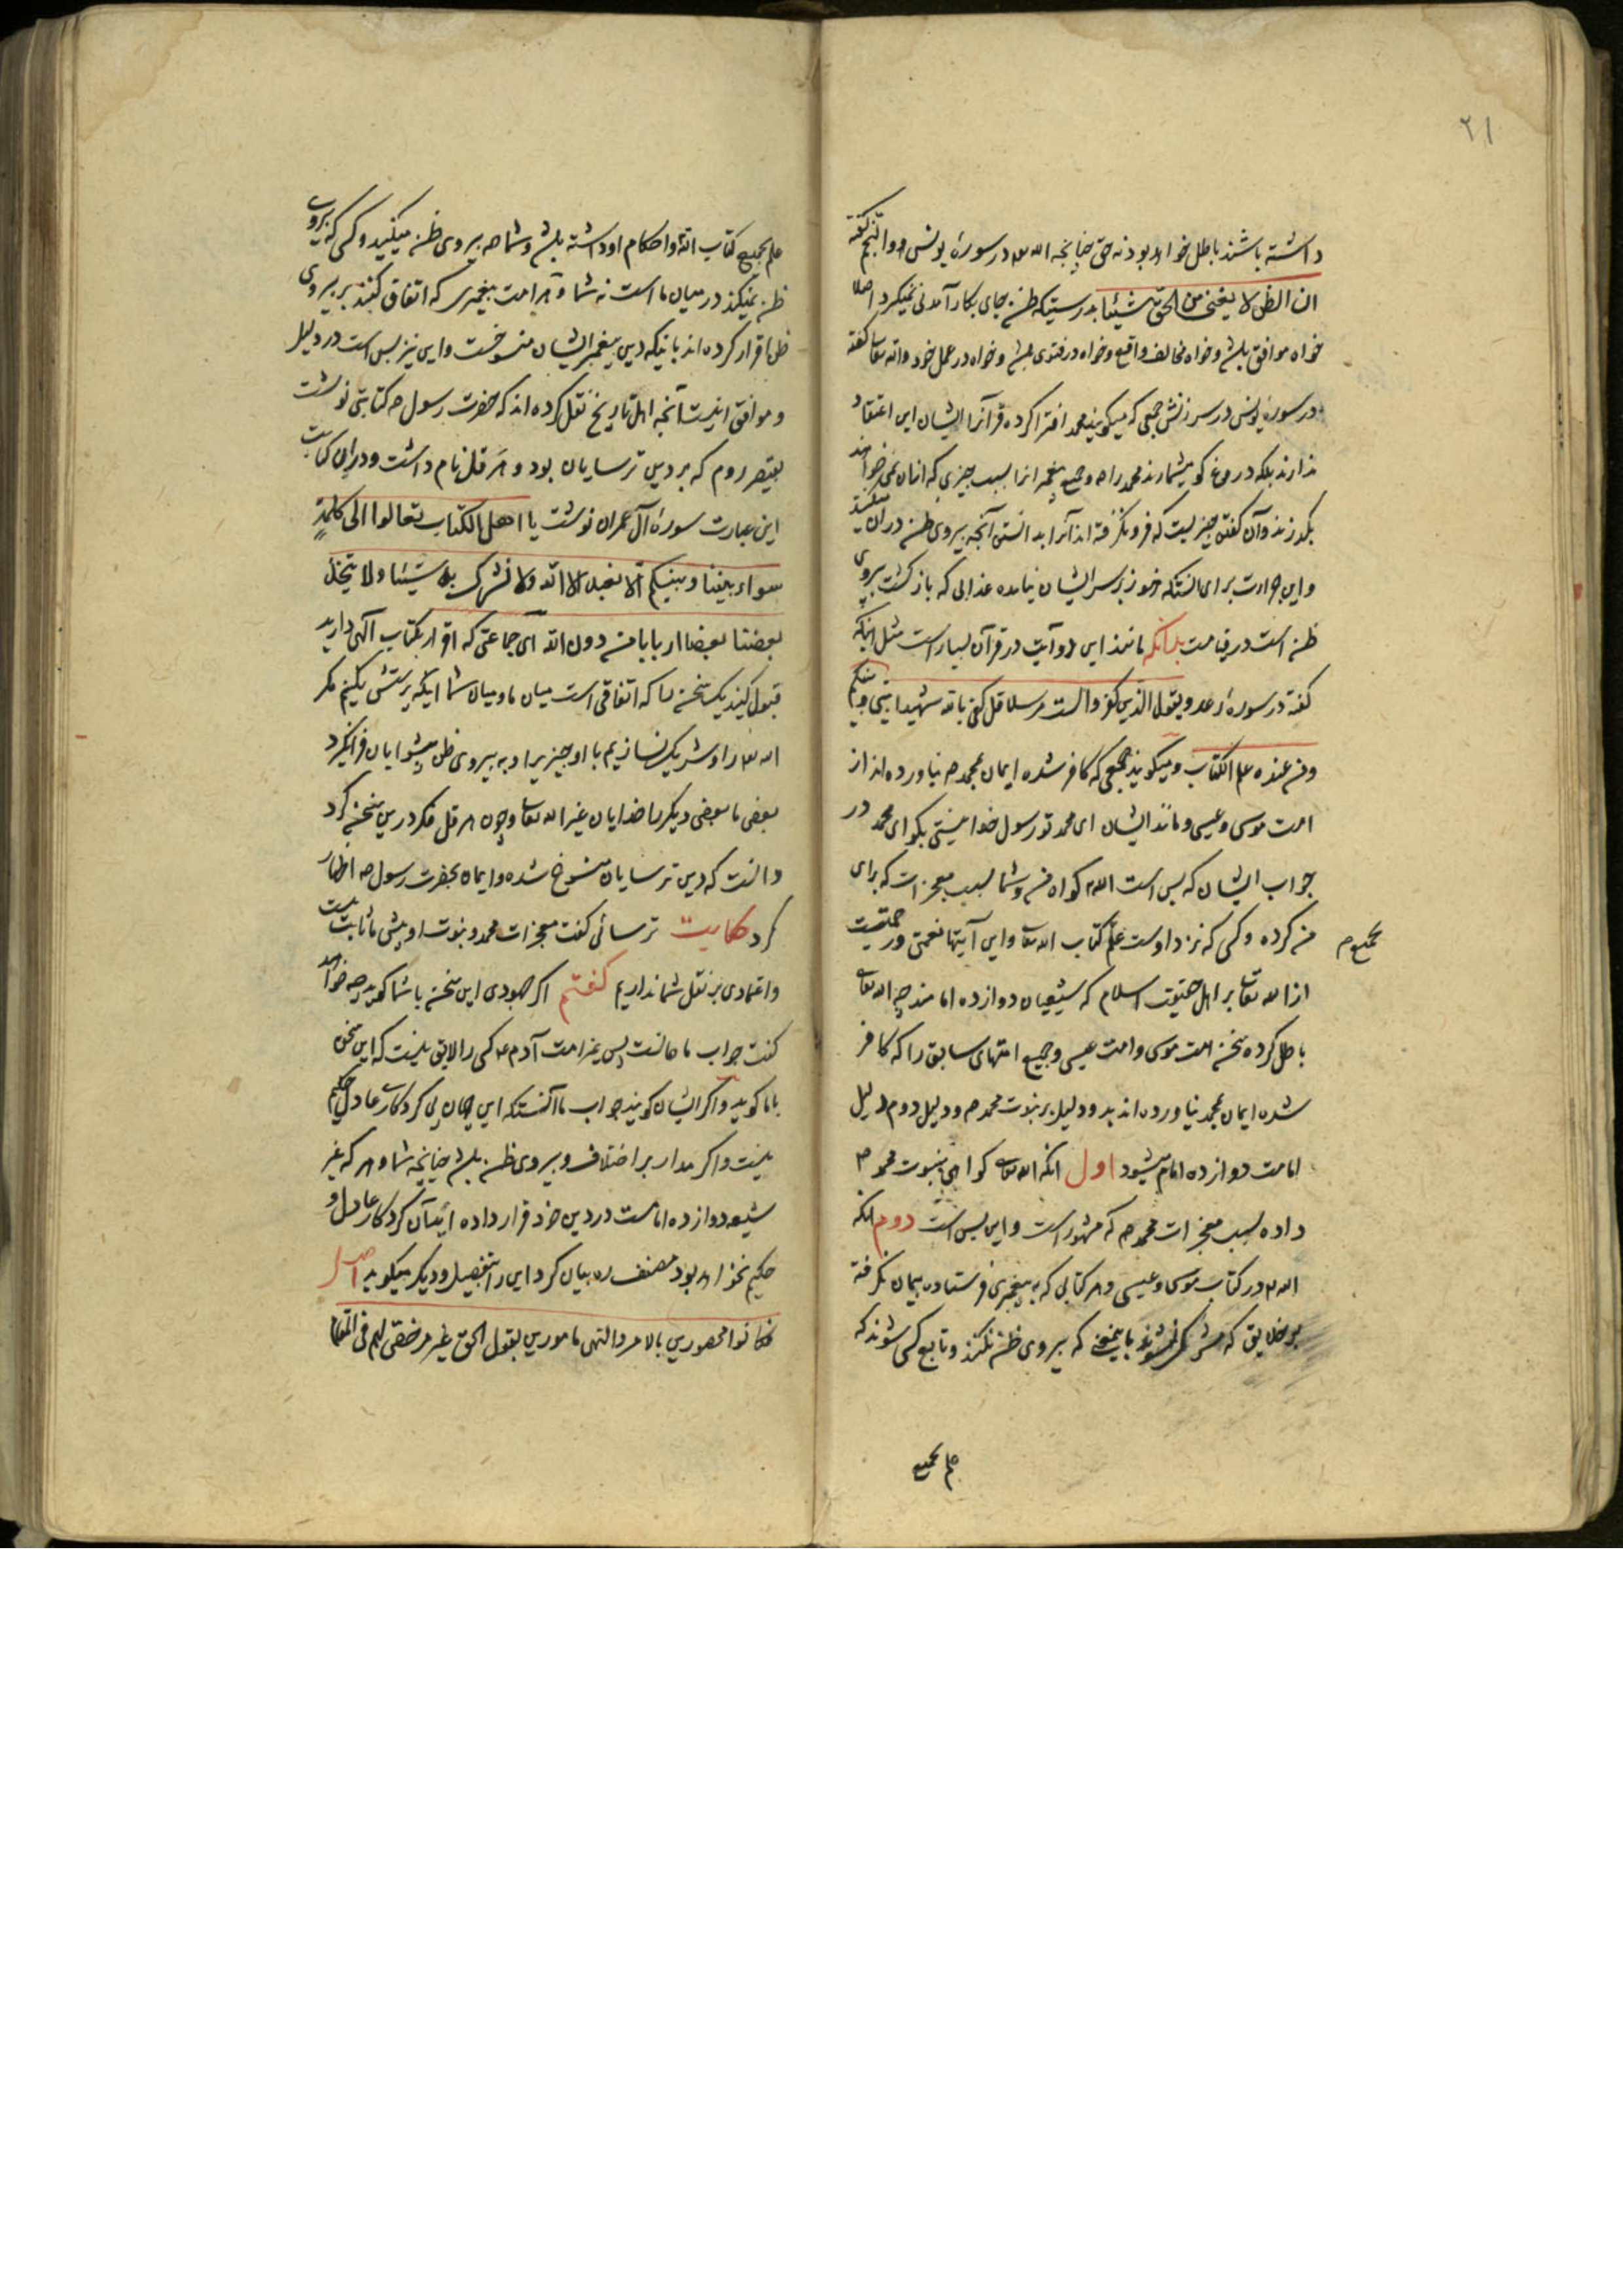 ۲۱
داشته باشند باطل خواهد بود نه حق چنانچه الله در سورهٔ یونس و والنجم گفته
ان الظن لا یغنی من الحق شیئا بدرستیکه ظن بجای بکار آمدنی نمیکرد اصلا
خواه موافق باشد و خواه مخالف واقع و خواه در فتوی باشد و خواه در عمل خود والله تعالی گفته
در سوره یونس در سرزنش جمعی که میکویند محمد افترا کرده قرآنرا ایشان این اعتقاد
ندارند بلکه دروغ کو میشمارند محمد را و جمیع پیغمبرانرا بسبب چیزی که ازان نمی‌خواهند
بکذرند و آن کفتن چیزیست که فرو نکرفته اند آنرا بدانستن آنچه پیروی ظن دران میکنند
و این جرات برای آنستکه هنوز بر سر ایشان نیامده عذابی که بازکشت پیروی
ظن است در قیامت بدانکه مانند این دو آیت در قرآن بسیار است مثل اینکه
کفته در سورهٔ رعد ویقول الذین کفروا لست مرسلا قل کفی بالله شهیدا بینی وبینکم
ومن عنده علم الکتاب و میکویند جمعی که کافر شده ایمان بمحمد نیاورده اند از
امت موسی و عیسی و مانند ایشان ای محمد تو رسول خدا نیستی بکو ای محمد در
جواب ایشان که بس است الله کواه من و شما بسبب معجزات که برای
من کرده و کسی که نزد اوست علم کتاب الله تعالی و این آیتها نعمتی و رحمتیست
بجمیع م
از الله تعالی بر اهل حقیقت اسلام که شیعیان دوازده امامند چه الله تعالی
باطل کرده سخن امت موسی و امت عیسی و جمیع امتهای سابق را که کافر
شده ایمان بمحمد نیاورده اند بدو دلیل بر نبوت محمد و دلیل دوم دلیل
امامت دوازده امام میشود اول انکه الله تعالی کواهی بنبوت محمد
داده بسبب معجزات محمد که مشهور است و این بس است دوم انکه
الله در کتاب موسی و عیسی و هر کتابی که به پیغمبری فرستاده پیمان نکرفته
بر خلایق که مشرک نشوند باینمعنی که پیروی ظن نکنند و تابع کسی شوند که
علم بجمیع
علم بجمیع کتاب الله و احکام او داشته باشد و شما همه پیروی ظن میکنید و کسی که پیروی
ظن نمیکند در میان ما است نه شما و هر امت پیغمبری که اتفاق کنند بر پیروی
ظن اقرار کرده اند باینکه دین پیغمبر ایشان منسوخست و این نیز بس است در دلیل
و موافق اینست آنچه اهل تاریخ نقل کرده اند که حضرت رسول کتابتی نوشت
بقیصر روم که بر دین ترسایان بود و هرقل نام داشت و دران کتابت
این عبارت سورهٔ آل عمران نوشت یا اهل الکتاب تعالوا الی کلمة
سواء بیننا وبینکم الا نعبد الا الله ولا نشرک به شیئا ولا یتخذ
بعضنا بعضا اربابا من دون الله ای جماعتی که اقرار بکتاب آلهی دارید
قبول کنید یک سخن را که اتفاقی است میان ما و میان شما اینکه پرستش نکنیم مکر
الله را و شریک نسازیم با او چیزیرا و به پیروی ظن پیشوایان فرانکیرد
بعضی ما بعضی دیکر را خدایان غیر الله تعالی و چون هرقل فکر درین سخن کرد
دانست که دین ترسایان منسوخ شده و ایمان بحضرت رسول اظهار
کرد حکایت ترسائی کفت معجزات محمد و نبوت او پیش ما ثابت نیست
و اعتمادی بر نقل شما نداریم کفتم اکر جهودی این سخن با شما کوید چه خواهید
کفت جواب ما همانست پس غیر امت آدم کسی را لایق نیست که این سخن
با ما کوید و اکر ایشان کویند جواب ما آنستکه این جهان بی کردکار عادل حکیم
نیست و اکر مدار بر اختلاف و پیروی ظن باشد چنانچه شما و هر که غیر
شیعه دوازده امامست در دین خود قرار داده اند آن کردکار عادل و
حکیم نخواهد بود مصنف ره بیان کرد این را بتفصیل و دیکر میکوید اصل
فکانوا محصورین بالامر والنهی مامورین بقول الحق غیر مرخص لهم فی المقام